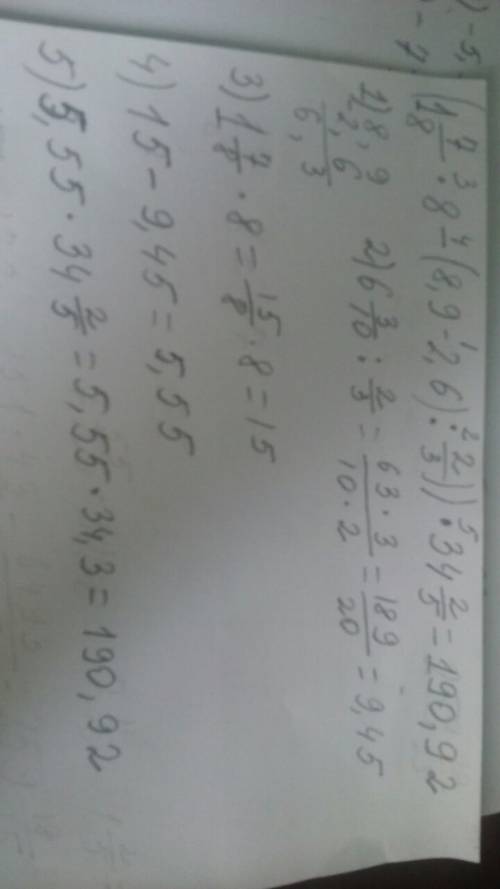 (1 7/8 · 8 - (8,9 - 2,6) : 2/3) · 34 2/5 = 190,92
1) 8,9
2,6
6,3
2) 6 3/10 : 2/3 = 63·3/10·2 = 189/20 = 9,45
3) 1 7/8 · 8 = 15/8 · 8 = 15
4) 15 - 9,45 = 5,55
5) 5,55 · 34 2/5 = 5,55 · 34,3 = 190,92